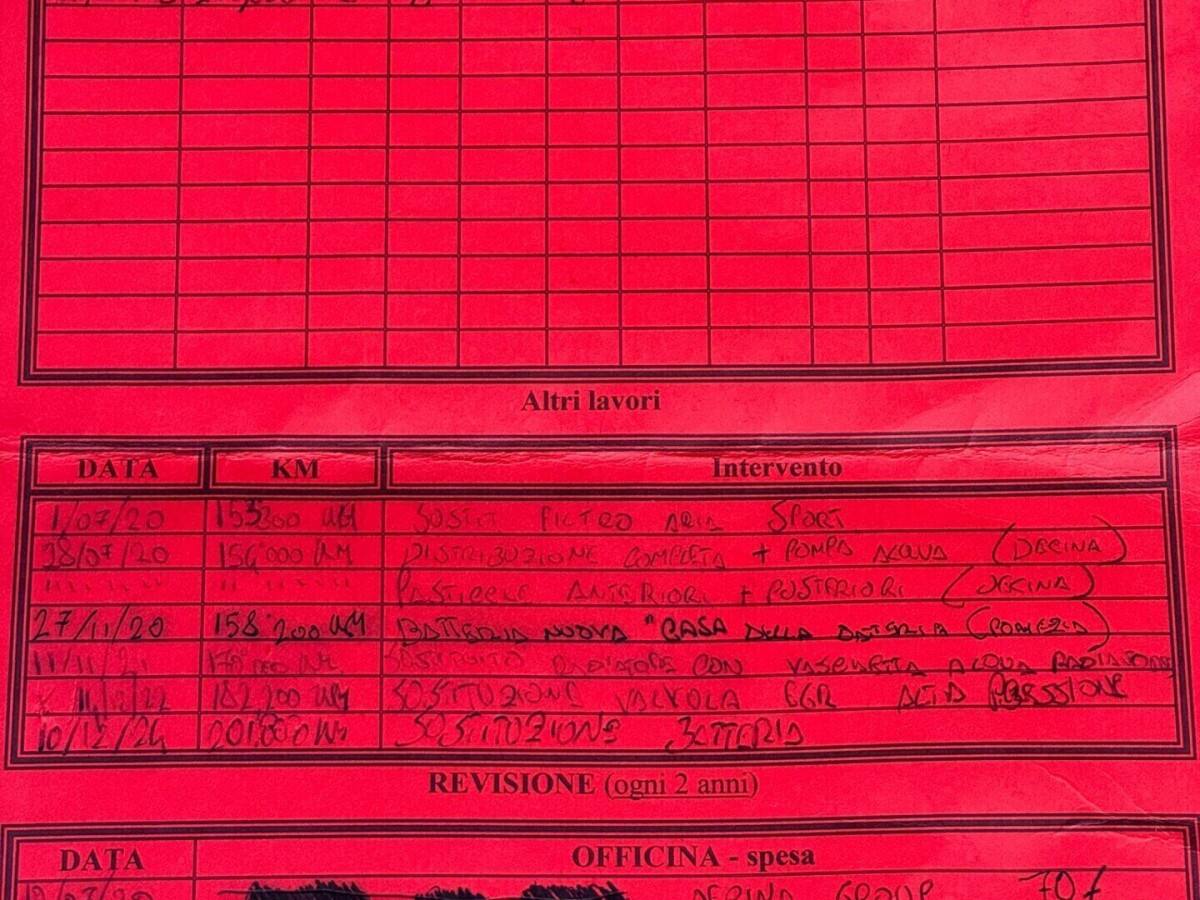 Altri lavori
DATA KM Intervento
1/07/20 153'300 KM SOSTIT FILTRO ARIA SPORT
28/07/20 154'000 KM DISTRIBUZIONE COMPLETA + POMPA ACQUA (DECINA)
" " " " " " " " " " " " PASTIGLIE ANTERIORI + POSTERIORI (DECINA)
27/11/20 158'200 KM BATTERIA NUOVA "CASA DELLA BATTERIA (POMEZIA)
11/11/21 KM SOSTITUITO RADIATORE CON VASCHETTA ACQUA RADIATORE
182'200 KM SOSTITUZIONE VALVOLA EGR ALTA PRESSIONE
10/12/24 201'000 KM SOSTITUZIONE BATTERIA
REVISIONE (ogni 2 anni)
DATA OFFICINA - spesa
GROUP 70 €